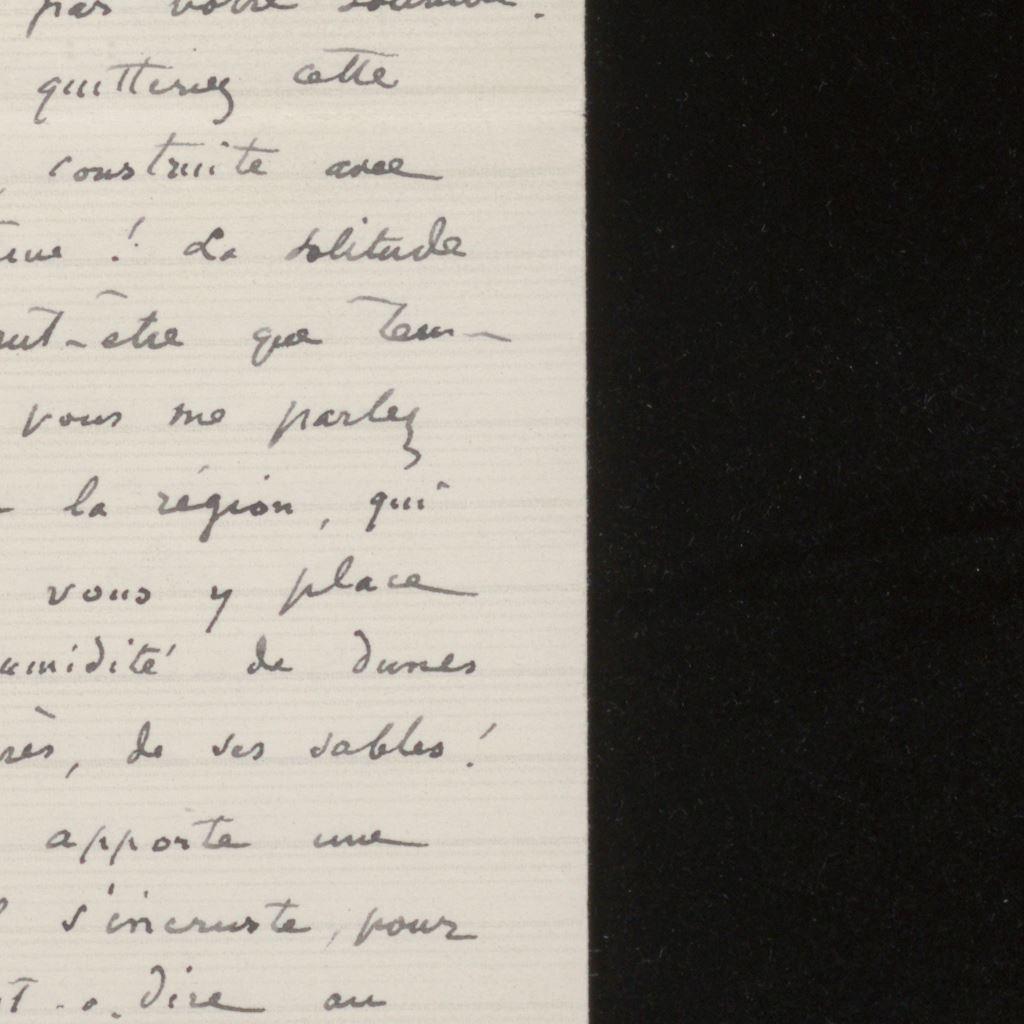 par votre
quitteriez cette
, construite avec
! La solitude
-être que tem-
vous me parlez
la région, qui
vous y place
umidité de dunes
rès, de ses sables !
apporte une
s'incruste, pour
t-à-dire au